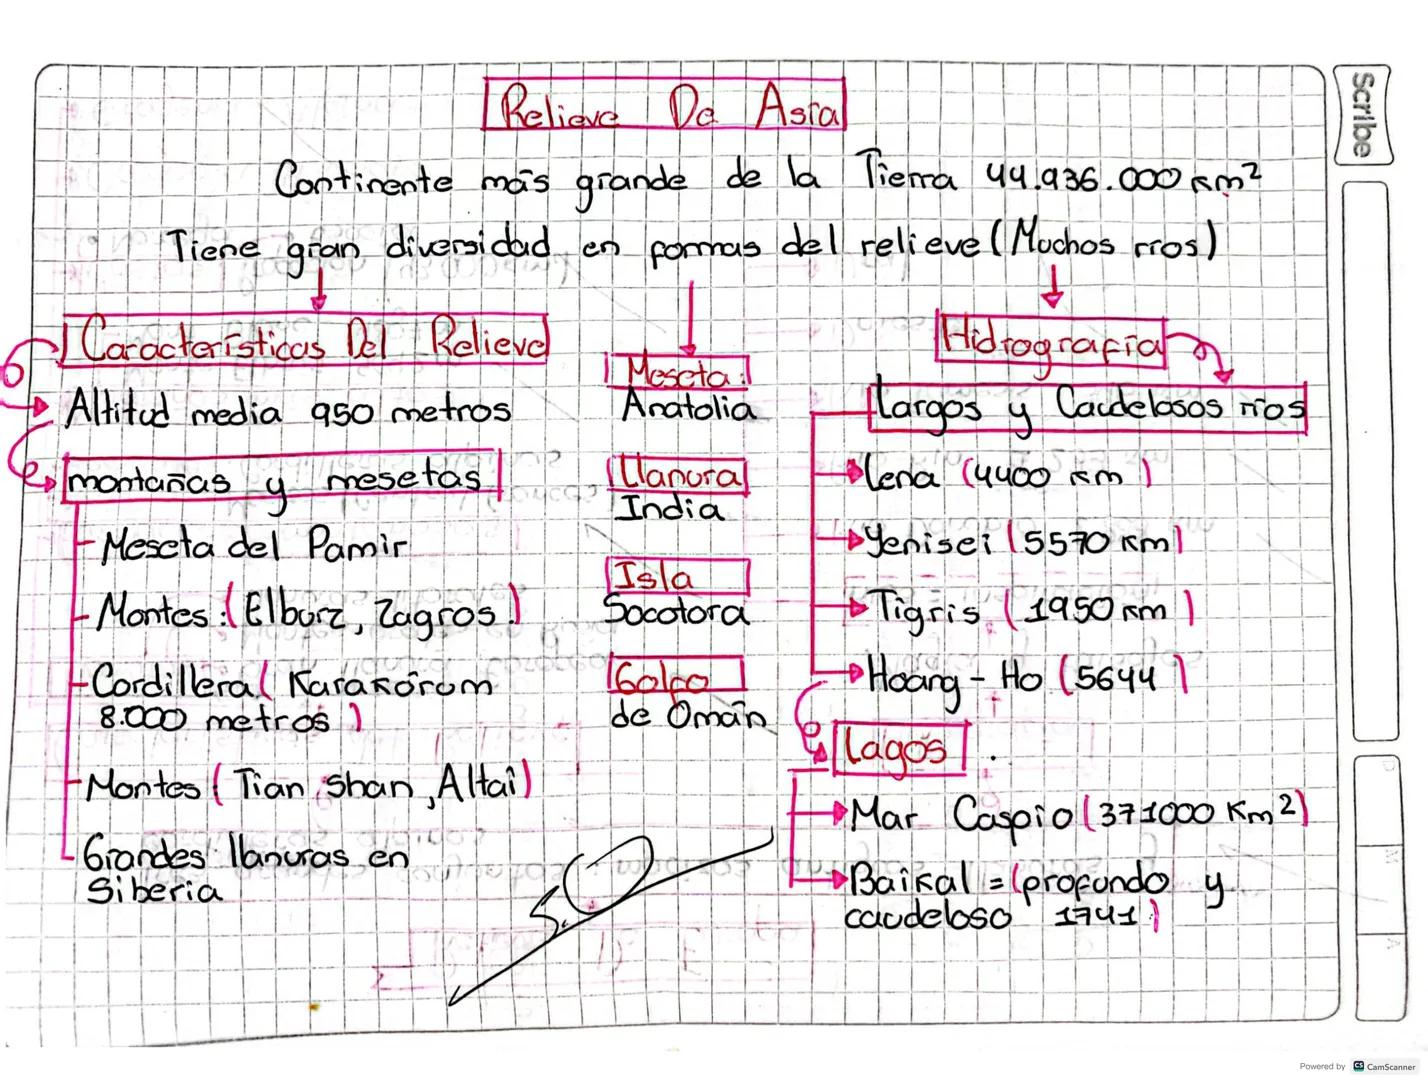 Relieve De Asia
Continente más grande de la Tierra 44.936.000 Km²
Tiene gran diversidad en formas del relieve (Muchos ríos)
Características Del Relieve
Altitud media 950 metros
montañas y mesetas
- Meseta del Pamir
- Montes: (Elburz, Zagros)
- Cordillera (Karakórum
8.000 metros)
- Montes (Tian Shan, Altai)
- Grandes llanuras en
Siberia
Meseta:
Anatolia
Llanura
India
Isla
Socotora
Golfo
de Omán
Hidrografía
Largos y Caudelosos ríos
Lena (4400 Km)
Yenisei (5570 Km)
Tigris (1950 Km)
Hoang-Ho (5644)
Lagos
Mar Caspio (371000 Km²)
Baikal = (profundo y
caudeloso 1741)
Scribe
Powered by CS CamScanner